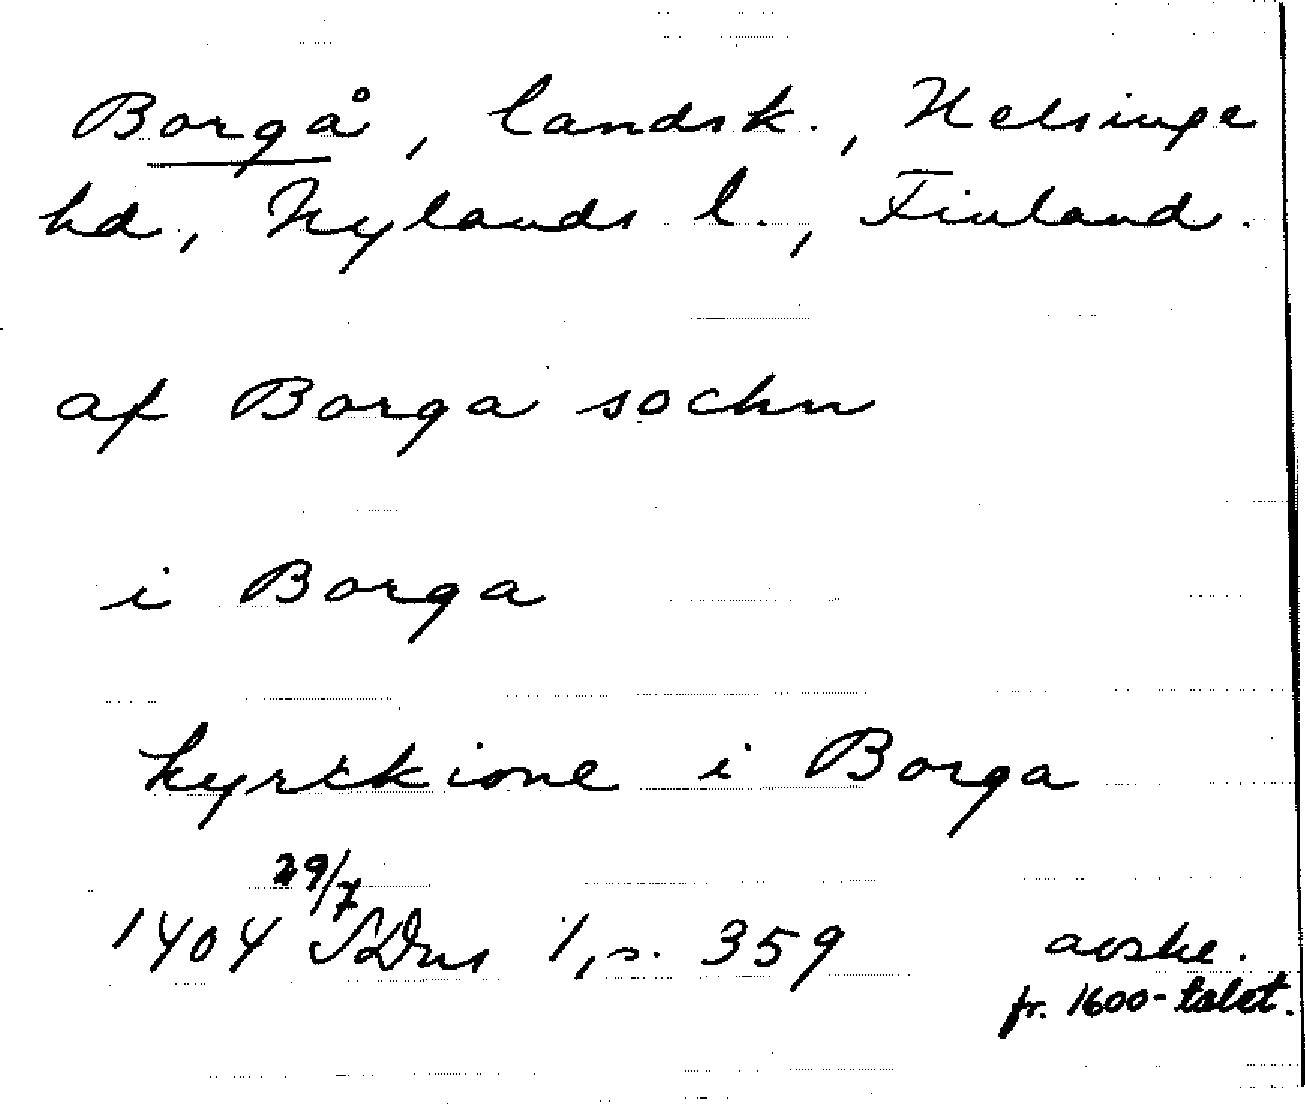 Borgå, landsk., Helsinge
hd, Nylands l., Finland.
af Borga sochn
i Borga
kyrckione i Borga
29/7
1404 SDns 1, s. 359 avskr.
fr. 1600-talet.